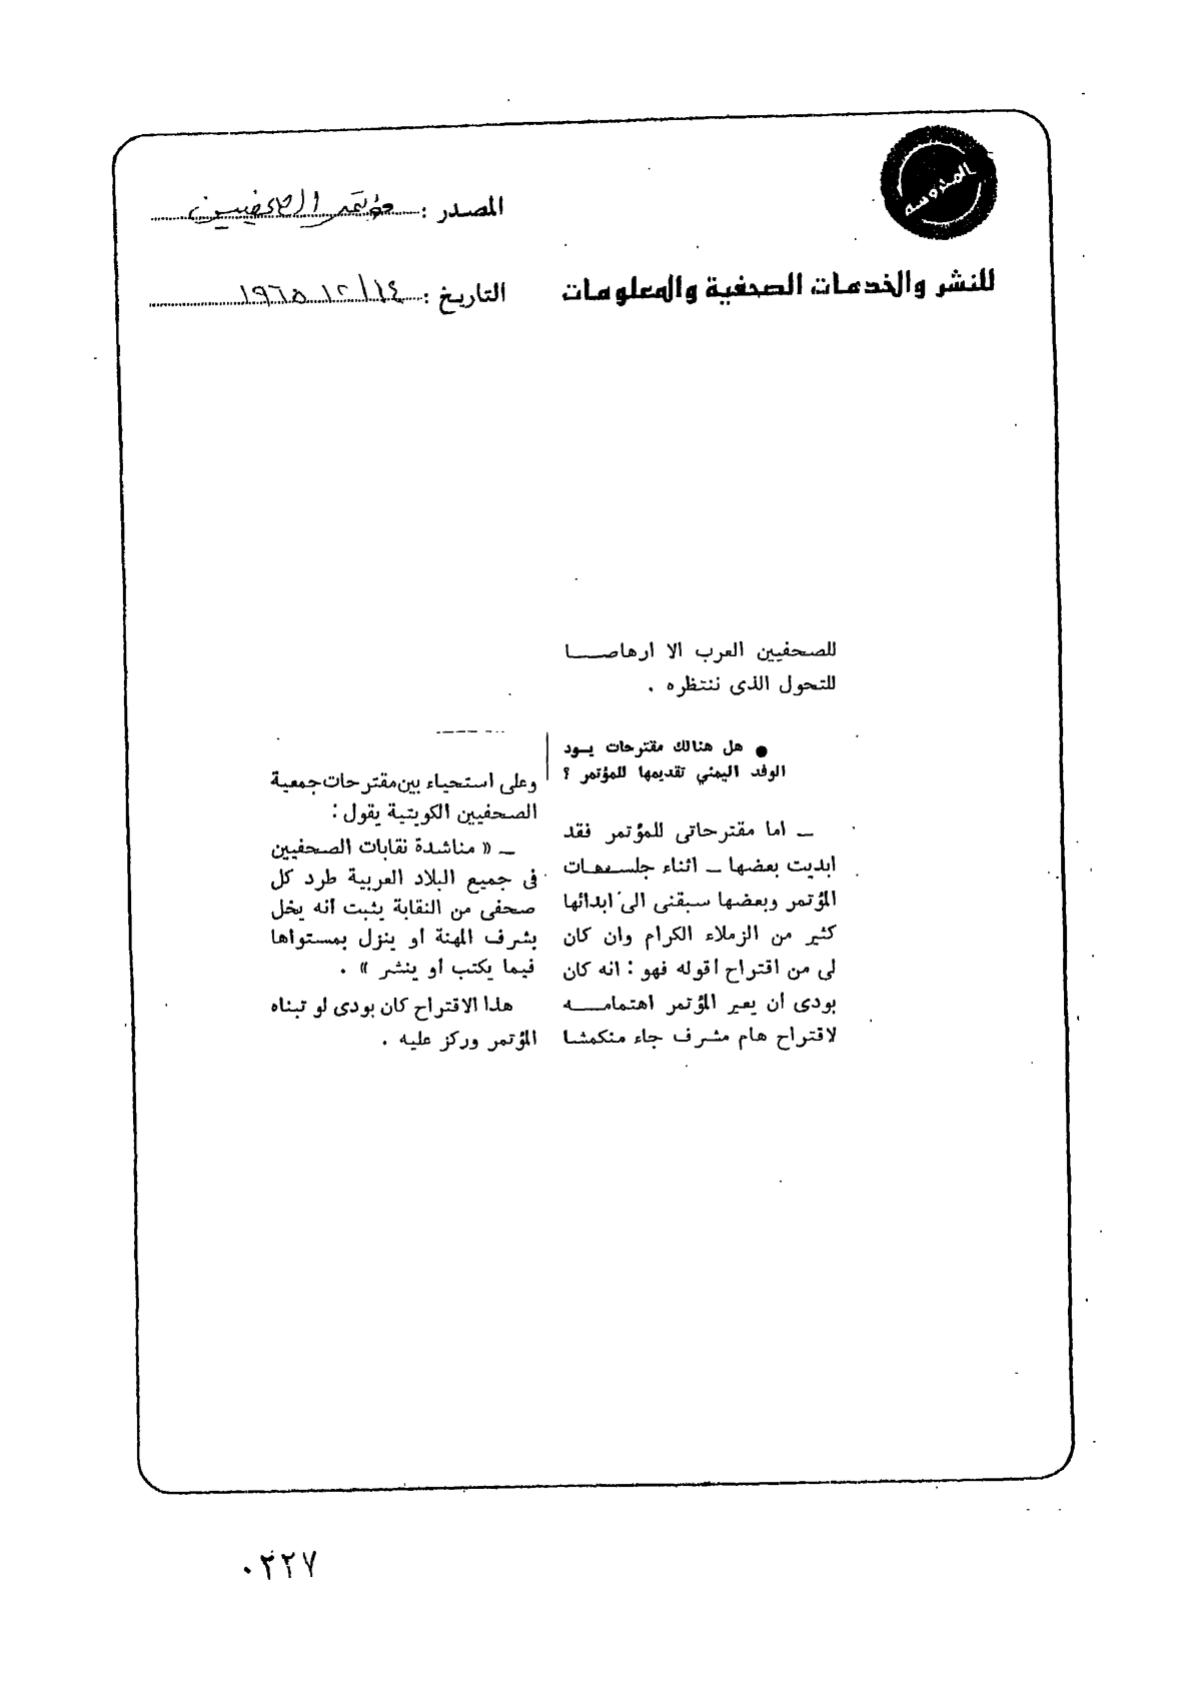 المحروسة
المصدر : مؤتمر الصحفيين
للنشر والخدمات الصحفية والمعلومات
التاريخ : ١٩٦٥/١٢/١٤
للصحفيين العرب الا ارهاصا
للتحول الذى ننتظره .
● هل هنالك مقترحات يود
الوفد اليمني تقديمها للمؤتمر ؟
ــ اما مقترحاتى للمؤتمر فقد
ابديت بعضها ــ اثناء جلسات
المؤتمر وبعضها سبقنى الى ابدائها
كثير من الزملاء الكرام وان كان
لى من اقتراح أقوله فهو : انه كان
بودى ان يعير المؤتمر اهتمامه
لاقتراح هام مشرف جاء منكمشا
وعلى استحياء بين مقترحات جمعية
الصحفيين الكويتية يقول :
ــ « مناشدة نقابات الصحفيين
فى جميع البلاد العربية طرد كل
صحفى من النقابة يثبت أنه يخل
بشرف المهنة أو ينزل بمستواها
فيما يكتب أو ينشر » .
هذا الاقتراح كان بودى لو تبناه
المؤتمر وركز عليه .
٠٢٢٧